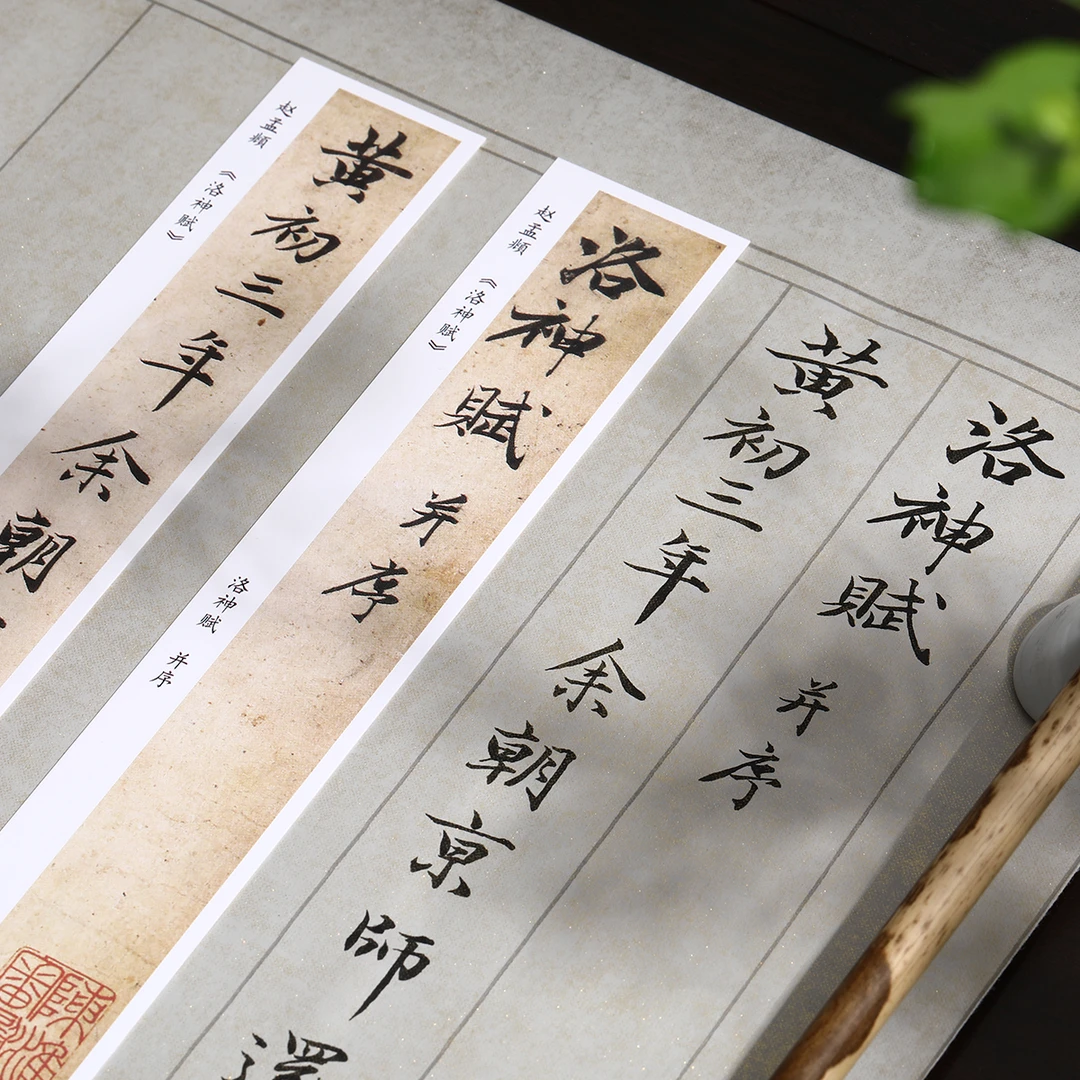 洛神賦
并序
黄初三年余朝京師還
洛神賦
并序
赵孟頫
《洛神賦》
洛神賦 并序
黄初三年余朝
赵孟頫
《洛神賦》